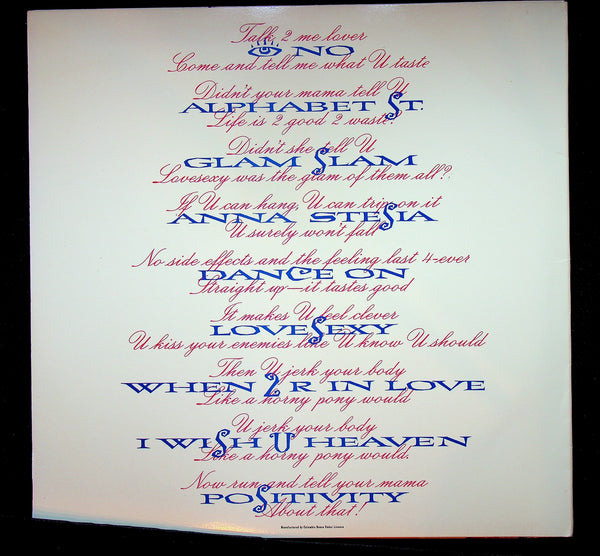 Talk 2 me lover
👁 NO
Come and tell me what U taste
Didn't your mama tell U
ALPHABET St.
Life is 2 good 2 waste?
Didn't she tell U
GLAM SLAM
Lovesexy was the glam of them all?
If U can hang, U can trip on it
ANNA STESIA
U surely won't fall
No side effects and the feeling last 4-ever
DANCE ON
Straight up—it tastes good
It makes U feel clever
LOVESEXY
U kiss your enemies like U know U should
Then U jerk your body
WHEN 2 R IN LOVE
Like a horny pony would
U jerk your body
I WISH U HEAVEN
Like a horny pony would.
Now run and tell your mama
POSITIVITY
About that!
Manufactured by Columbia House Under License